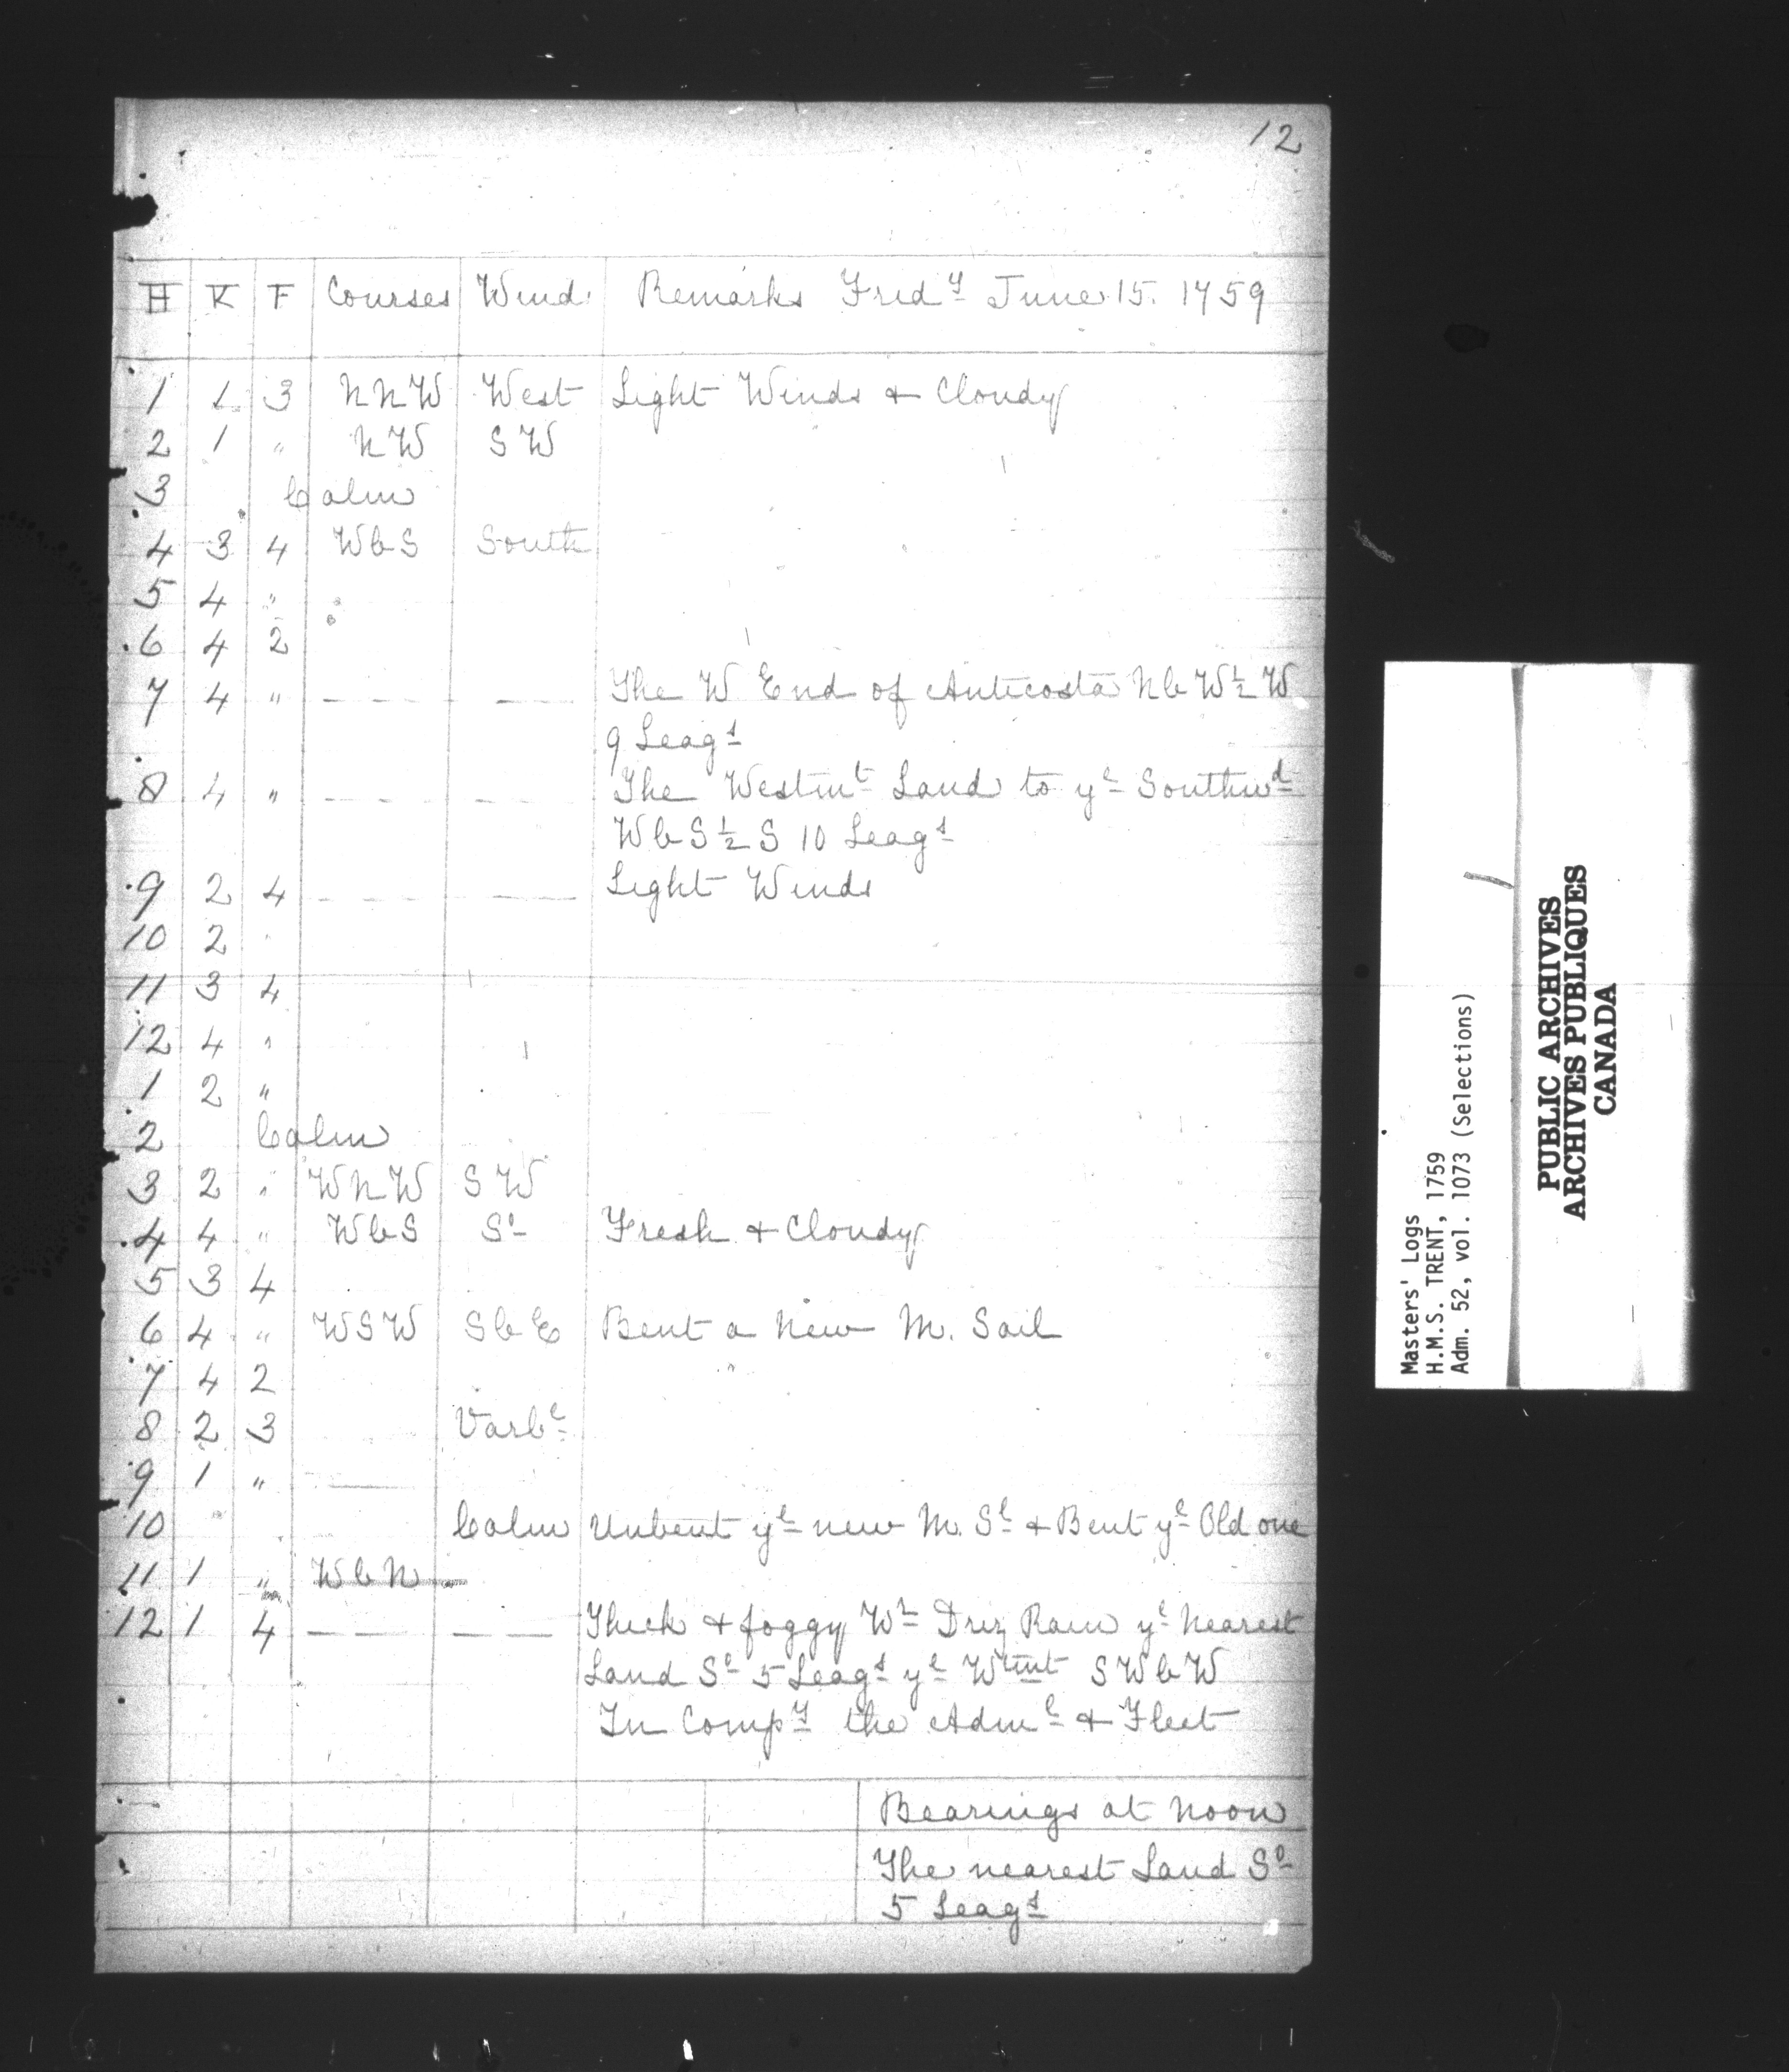 12
H K F Courses Wind Remarks Frid^y June 15. 1759
1 1 3 NNW West Light Winds & Cloudy
2 1 " NW SW
3 Calm
4 3 4 WbS South
5 4 " "
6 4 2
7 4 " — — — — — The W End of Anticosta NbW½W
9 Leag^s
8 4 " — — — — — The Westm^t Land to y^e Southw^d
WbS½S 10 Leag^s
9 2 4 — — — — — Light Winds
10 2 "
11 3 4
12 4 "
1 2 "
2 Calm
3 2 " WNW SW
4 4 " WbS S^o Fresh & Cloudy
5 3 4
6 4 " WSW SbE Bent a New M. Sail
7 4 2
8 2 3 Varb^e
9 1 " —
10 Calm Unbent y^e new M. S^l & Bent y^e Old one
11 1 " WbN —
12 1 4 — — — — Thick & foggy W^h Driz Rain y^e Nearest
Land S^o 5 Leag^s y^e W^tmt SWbW
In Comp^y the Adm^l & Fleet
Bearings at Noon
The nearest Land S^o
5 Leag^s
Masters' Logs
H.M.S. TRENT, 1759
Adm. 52, vol. 1073 (Selections)
PUBLIC ARCHIVES
ARCHIVES PUBLIQUES
CANADA